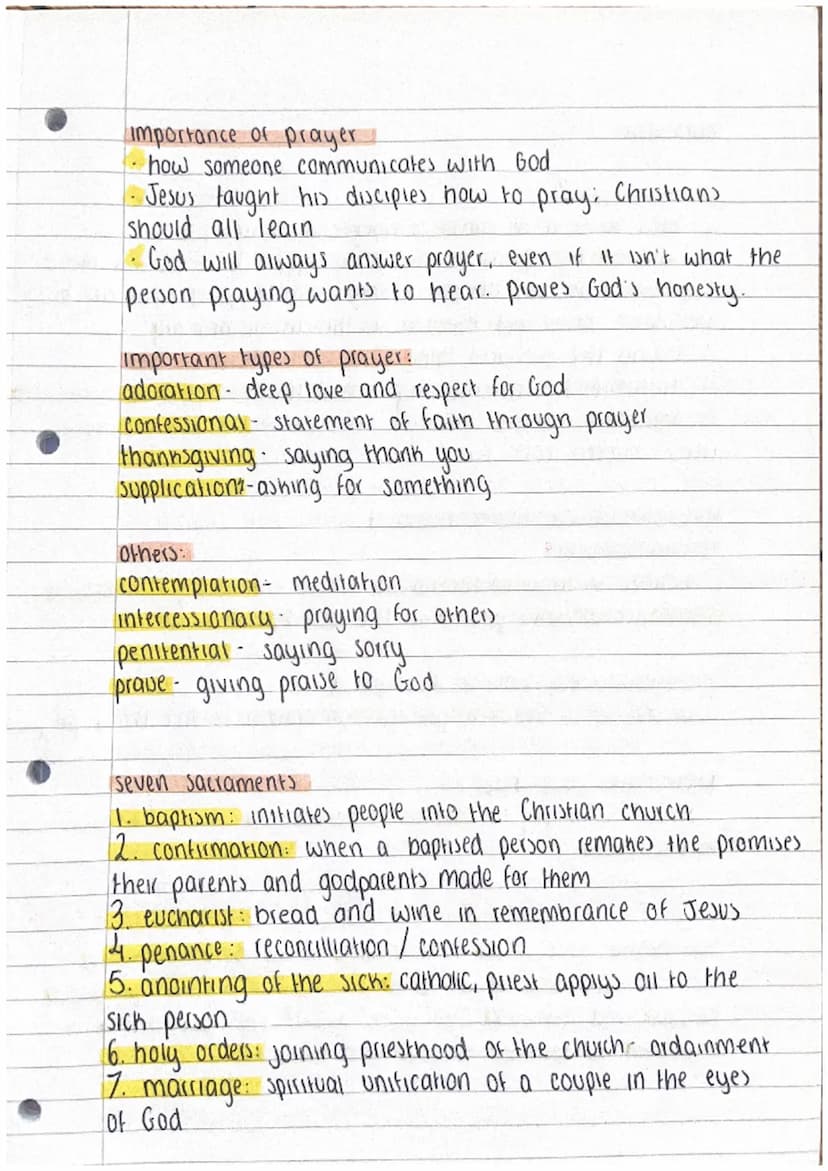 importance of prayer
· how someone communicates with God
· Jesus taught his disciples how to pray; Christians
should all learn
· God will always answer prayer, even if it isn't what the
person praying wants to hear. proves God's honesty.
important types of prayer:
adoration - deep love and respect for God
confessional - statement of faith through prayer
thanksgiving - saying thank you
supplications - asking for something
others:
contemplation - meditation
intercessionary - praying for others
penitential - saying sorry
praise - giving praise to God
seven sacraments
1. baptism: initiates people into the Christian church
2. confirmation: when a baptised person remakes the promises
their parents and godparents made for them
3. eucharist: bread and wine in remembrance of Jesus
4. penance: reconcilliation / confession
5. anointing of the sick: catholic, priest applys oil to the
sick person
6. holy orders: joining priesthood of the church - ordainment
7. marriage: spiritual unification of a couple in the eyes
of God